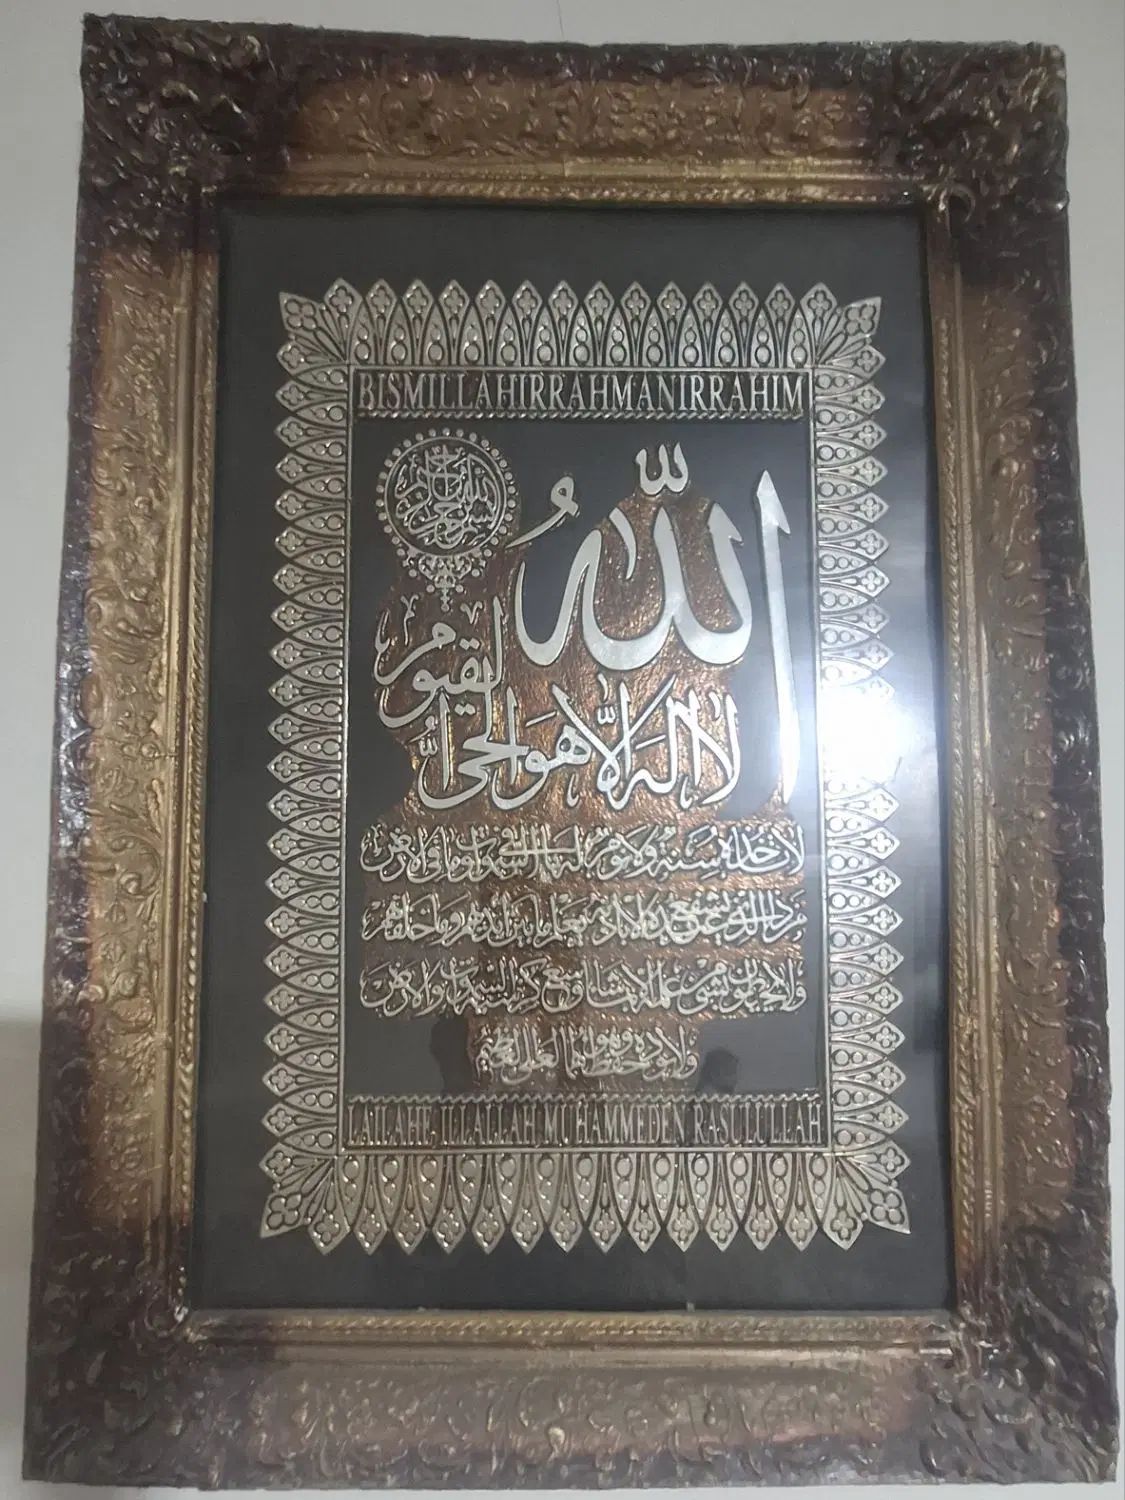 BISMILLAHIRRAHMANIRRAHIM
بسم الله الرحمن الرحيم
الله
لا اله الا هو الحي القيوم
لا تأخذه سنة ولا نوم له ما في السموات وما في الارض
من ذا الذي يشفع عنده الا باذنه يعلم ما بين ايديهم وما خلفهم
ولا يحيطون بشيء من علمه الا بما شاء وسع كرسيه السموات والارض
ولا يؤده حفظهما وهو العلي العظيم
LAILAHE ILLALLAH MUHAMMEDEN RASULULLAH